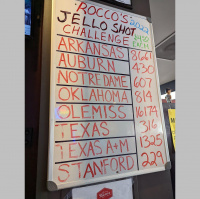 "ROCCO'S
JELLO SHOT
CHALLENGE
ARKANSAS 8667
AUBURN 430
NOTRE DAME 607
OKLAHOMA 814
OLE MISS 16174
TEXAS 316
TEXAS A+M 1325
STANFORD 229